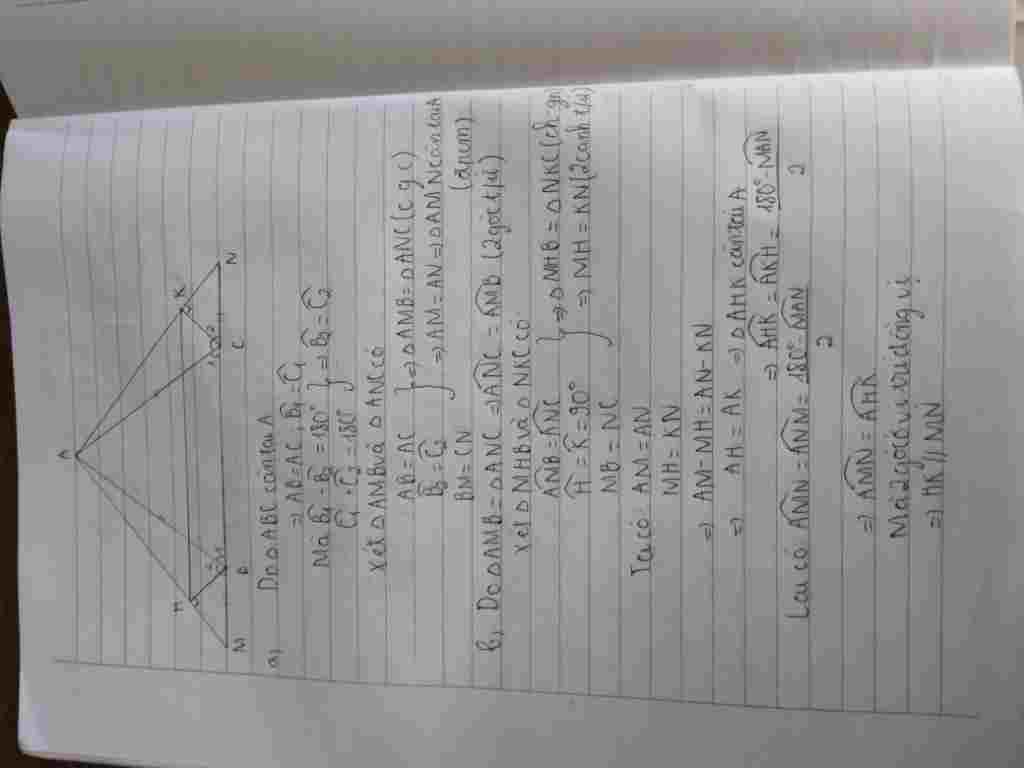 A
H
K
M
B
C
N
a, Do △ABC cân tại A
⇒ AB=AC, B̂₁=Ĉ₁
Mà B̂₁+B̂₂=180°
Ĉ₁+Ĉ₂=180° } ⇒ B̂₂=Ĉ₂
Xét △AMB và △ANC có
AB=AC
B̂₂=Ĉ₂ } ⇒ △AMB=△ANC (c.g.c)
BM=CN ⇒ AM=AN ⇒ △AMN cân tại A
(đpcm)
b, Do △AMB=△ANC ⇒ ANC=AMB (2 góc t/ư)
Xét △MHB và △NKC có
AMB=ANC
Ĥ=K̂=90° } ⇒ △MHB=△NKC (ch.gn)
MB=NC ⇒ MH=KN (2 cạnh t/ư)
Ta có: AM=AN
MH=KN
⇒ AM-MH=AN-KN
⇒ AH=AK ⇒ △AHK cân tại A
⇒ AHK=AKH=180°-MAN/2
Lại có AMN=ANM=180°-MAN/2
⇒ AMN=AHK
Mà 2 góc ở vị trí đồng vị
⇒ HK//MN